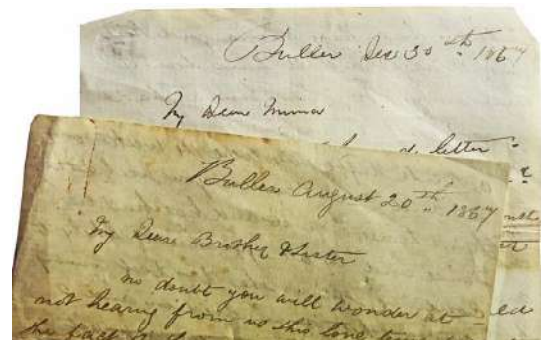 Buller Dec 30th 1867
My Dear Minna
letter
Buller August 20th 1867
My Dear Brother & Sister
no doubt you will wonder at
not hearing from us this long time
the fact is